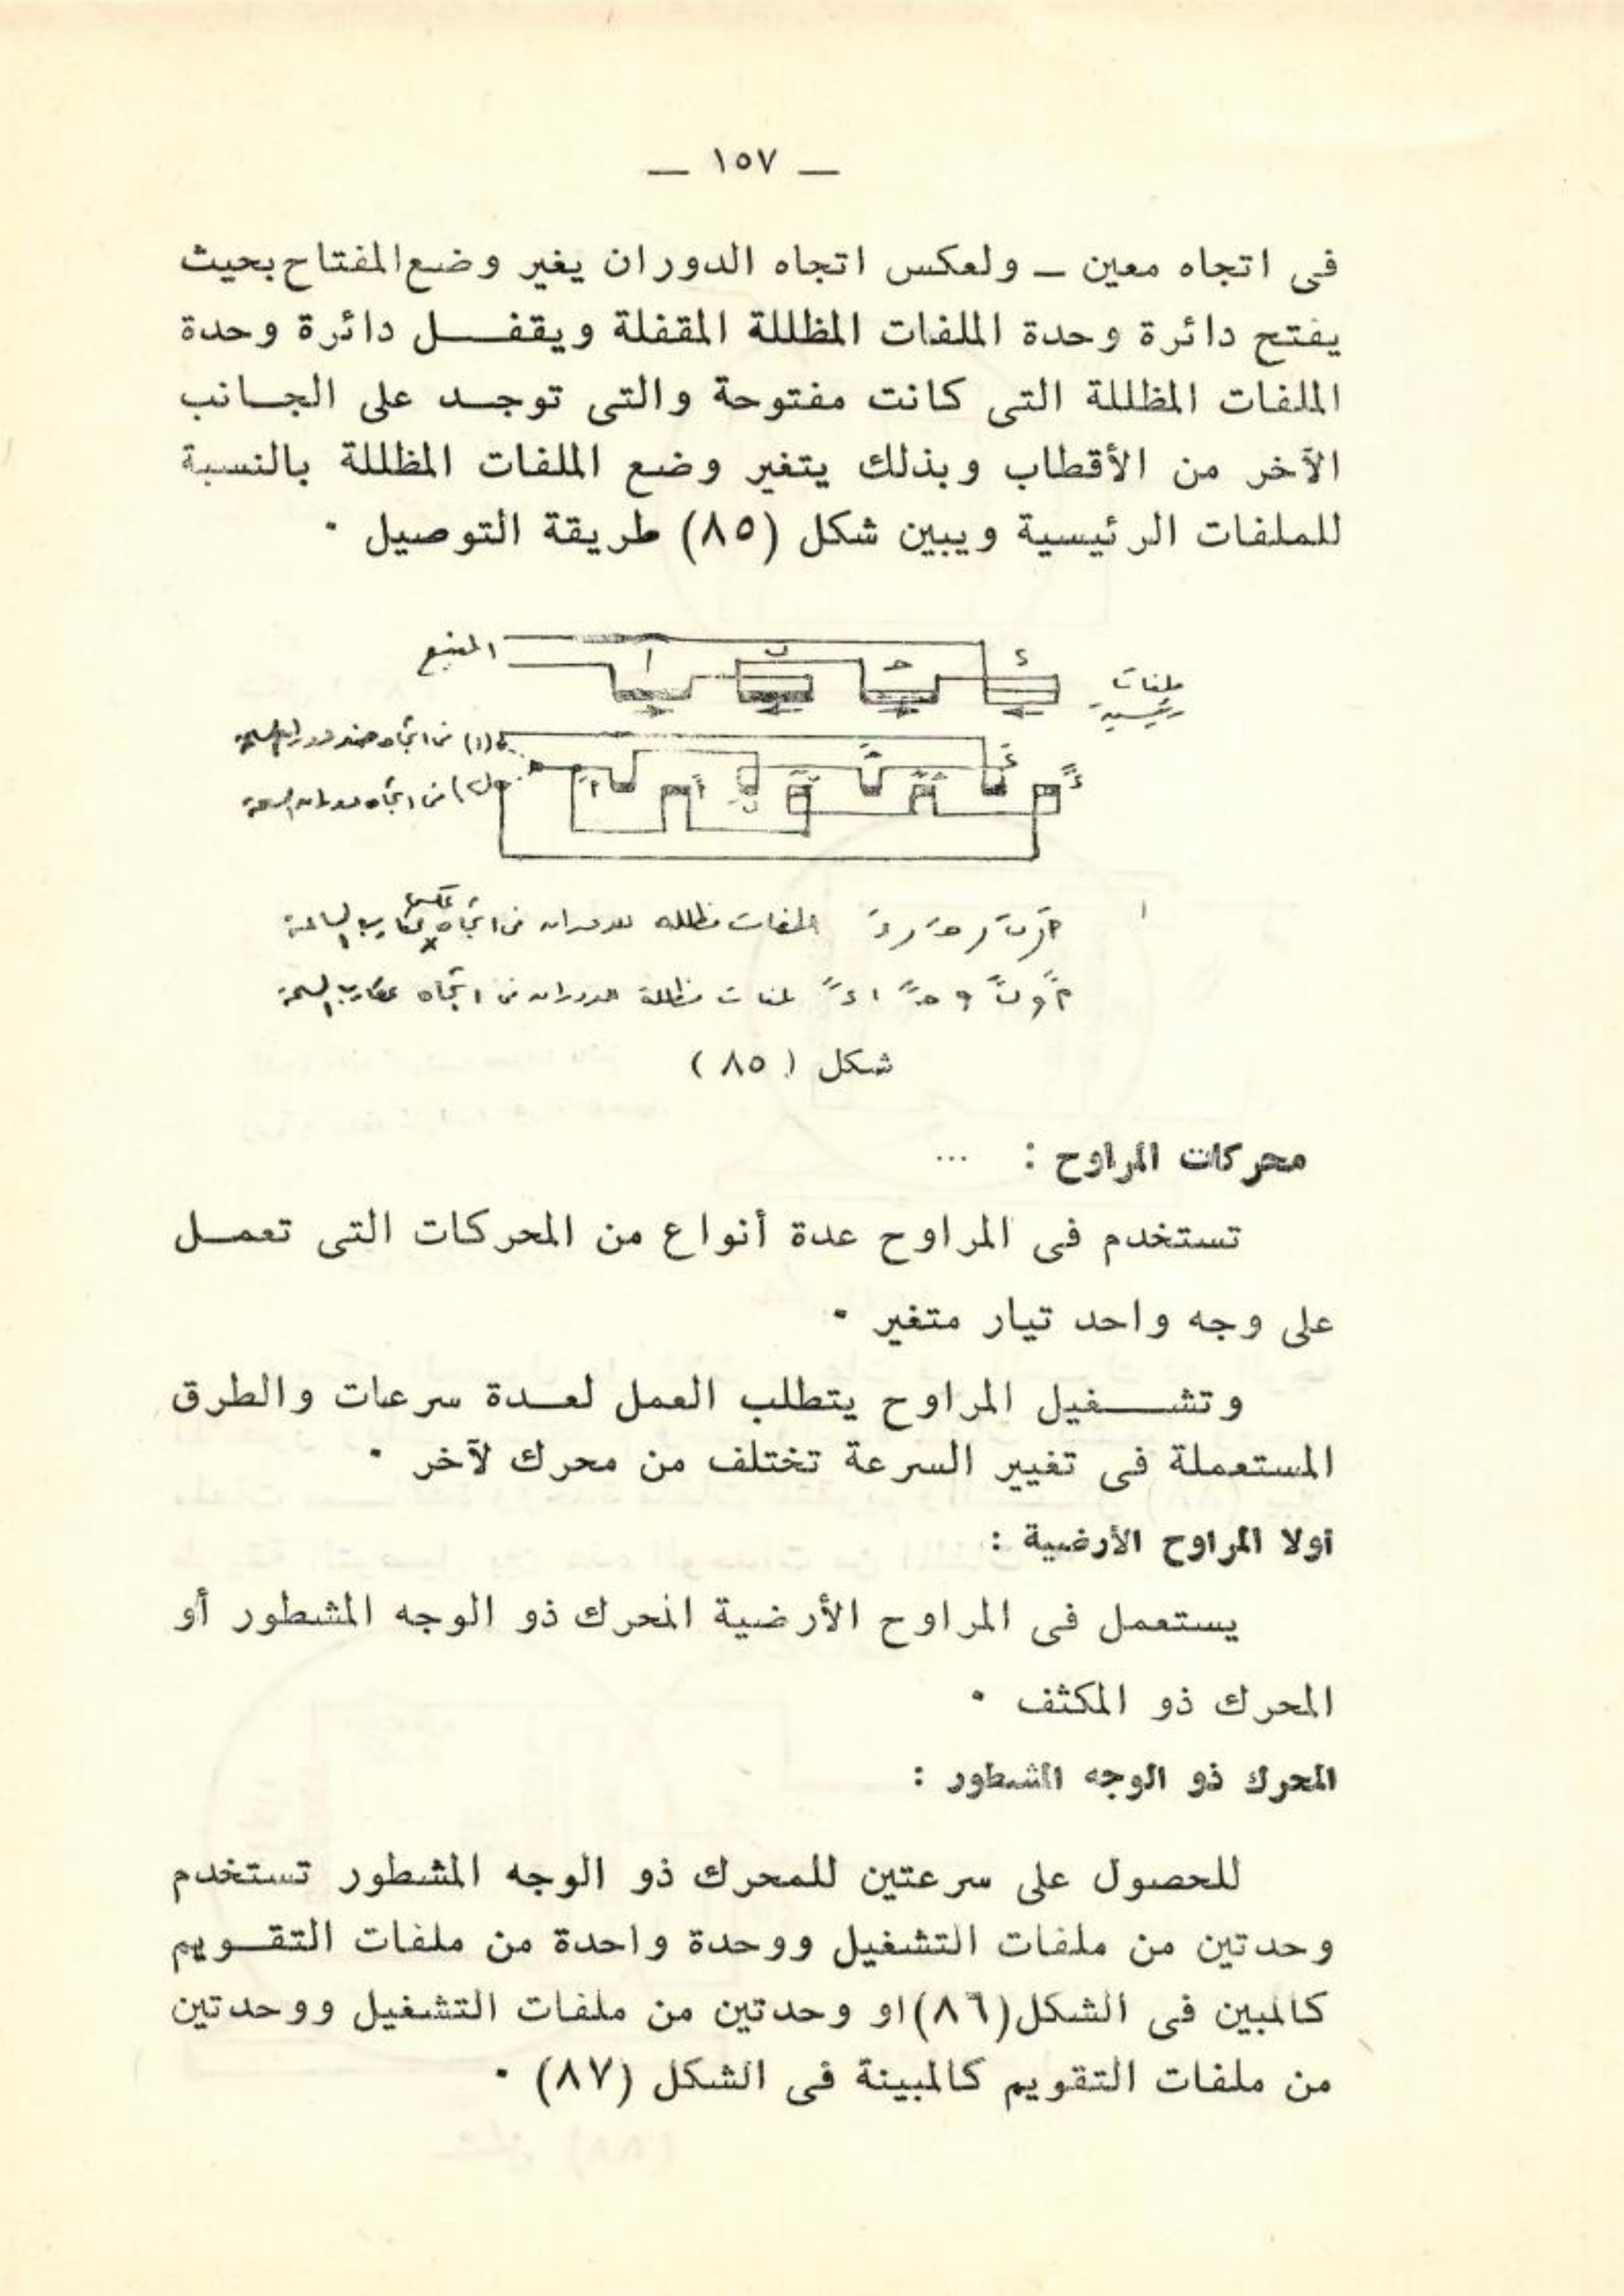 — ١٥٧ —
فى اتجاه معين — ولعكس اتجاه الدوران يغير وضع المفتاح بحيث
يفتح دائرة وحدة الملفات المظللة المقفلة ويقفل دائرة وحدة
الملفات المظللة التى كانت مفتوحة والتى توجد على الجانب
الآخر من الأقطاب وبذلك يتغير وضع الملفات المظللة بالنسبة
للملفات الرئيسية ويبين شكل (٨٥) طريقة التوصيل ٠
المنبع
ا
ب
حـ
ء
ملفات
رئيسية
(١) فى اتجاه ضد دوران الساعة
فى اتجاه دوران الساعة
ملفات مظلله للدوران فى اتجاه عكس عقارب الساعة
ملفات مظللة للدوران فى اتجاه عقارب الساعة
شكل ( ٨٥ )
محركات المراوح : ...
تستخدم فى المراوح عدة أنواع من المحركات التى تعمل
على وجه واحد تيار متغير ٠
وتشغيل المراوح يتطلب العمل لعدة سرعات والطرق
المستعملة فى تغيير السرعة تختلف من محرك لآخر ٠
اولا المراوح الأرضية :
يستعمل فى المراوح الأرضية المحرك ذو الوجه المشطور أو
المحرك ذو المكثف ٠
المحرك ذو الوجه المشطور :
للحصول على سرعتين للمحرك ذو الوجه المشطور تستخدم
وحدتين من ملفات التشغيل ووحدة واحدة من ملفات التقويم
كالمبين فى الشكل (٨٦) او وحدتين من ملفات التشغيل ووحدتين
من ملفات التقويم كالمبينة فى الشكل (٨٧) ٠